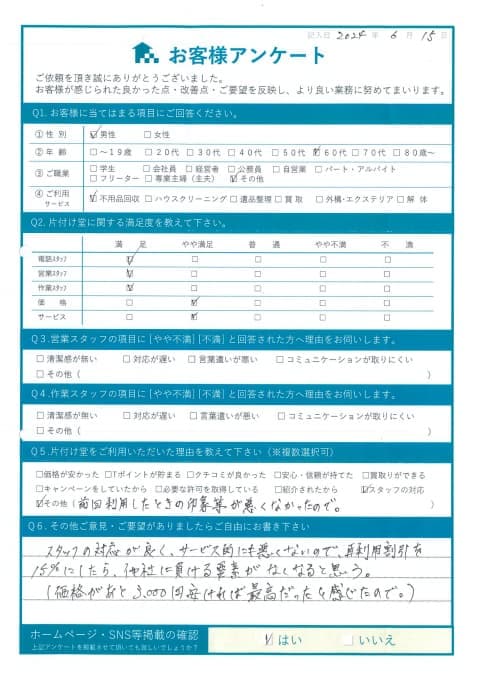 記入日 2024 年 6 月 15 日
お客様アンケート
ご依頼を頂き誠にありがとうございました。
お客様が感じられた良かった点・改善点・ご要望を反映し、より良い業務に努めてまいります。
Q1. お客様に当てはまる項目にご回答ください。
①性 別 ☑男性 □女性
②年 齢 □～19歳 □20代 □30代 □40代 □50代 ☑60代 □70代 □80歳～
③ご職業 □学生 □会社員 □経営者 □公務員 □自営業 □パート・アルバイト
□フリーター □専業主婦（主夫） ☑その他
④ご利用サービス ☑不用品回収 □ハウスクリーニング □遺品整理 □買取 □外構・エクステリア □解体
Q2. 片付け堂に関する満足度を教えて下さい。
満足 やや満足 普通 やや不満 不満
電話スタッフ ☑ □ □ □ □
営業スタッフ ☑ □ □ □ □
作業スタッフ ☑ □ □ □ □
価格 □ ☑ □ □ □
サービス □ ☑ □ □ □
Q3. 営業スタッフの項目に[やや不満][不満]と回答された方へ理由をお伺いします。
□清潔感が無い □対応が遅い □言葉遣いが悪い □コミュニケーションが取りにくい
□その他（ ）
Q4. 作業スタッフの項目に[やや不満][不満]と回答された方へ理由をお伺いします。
□清潔感が無い □対応が遅い □言葉遣いが悪い □コミュニケーションが取りにくい
□その他（ ）
Q5. 片付け堂をご利用いただいた理由を教えて下さい（※複数選択可）
□価格が安かった □Tポイントが貯まる □クチコミが良かった □安心・信頼が持てた □買取りができる
□キャンペーンをしていたから □必要な許可を取得している □紹介されたから ☑スタッフの対応
☑その他（前回利用したときの印象等が悪くなかったので。
Q6. その他ご意見・ご要望がありましたらご自由にお書き下さい
スタッフの対応が良く、サービス的にも悪くないので、再利用割引を
15%にしたら、他社に負ける要素がなくなると思う。
（価格があと3,000円安ければ最高だったと感じたので。）
ホームページ・SNS等掲載の確認
上記アンケートを掲載させて頂いても宜しいでしょうか？
☑はい □いいえ